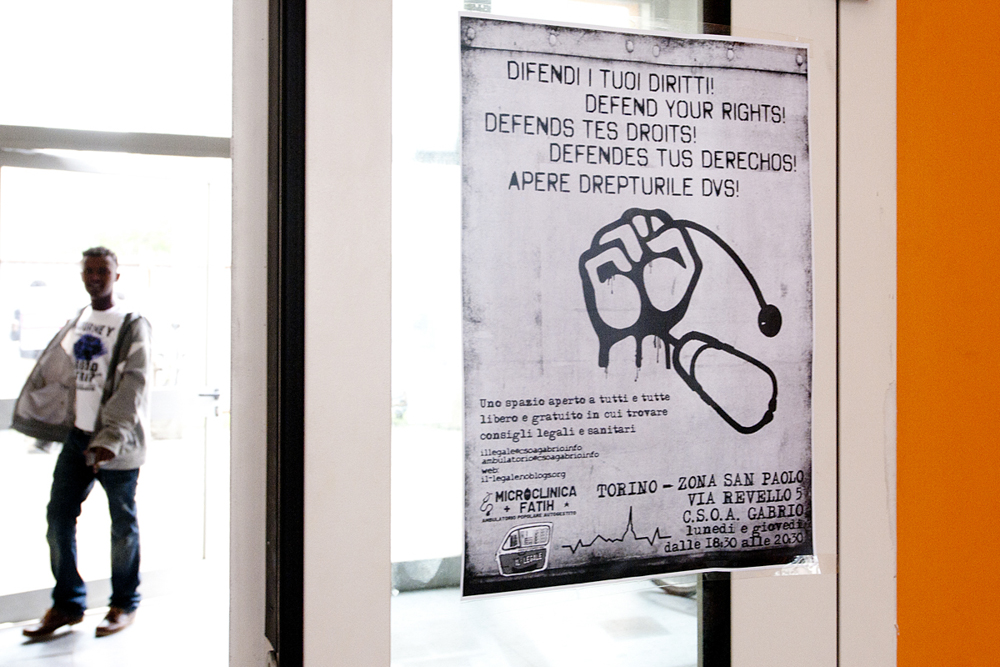 DIFENDI I TUOI DIRITTI!
DEFEND YOUR RIGHTS!
DEFENDS TES DROITS!
DEFENDES TUS DERECHOS!
APERE DREPTURILE DVS!
Uno spazio aperto a tutti e tutte
libero e gratuito in cui trovare
consigli legali e sanitari
illegale@csoagabrio.info
ambulatorio@csoagabrio.info
web:
il-legale.noblogs.org
MICROCLINICA
+ FATIH *
AMBULATORIO POPOLARE AUTOGESTITO
IL LEGALE
TORINO - ZONA SAN PAOLO
VIA REVELLO 5
C.S.O.A. GABRIO
lunedi e giovedi
dalle 18:30 alle 20:30
ROAD
TRIP